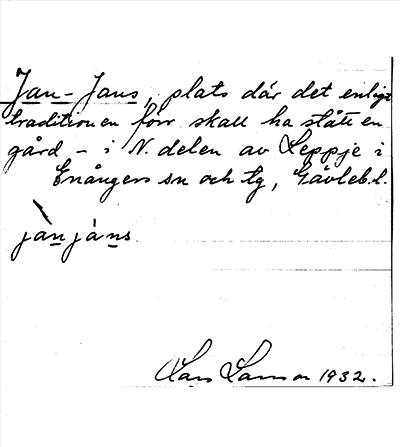 Jan-Jans, plats där det enligt
traditionen förr skall ha stått en
gård - i N. delen av Leppje i
Enångers sn och tg, Gävleb.l.
jàn jáns.
Lars Larsson 1932.